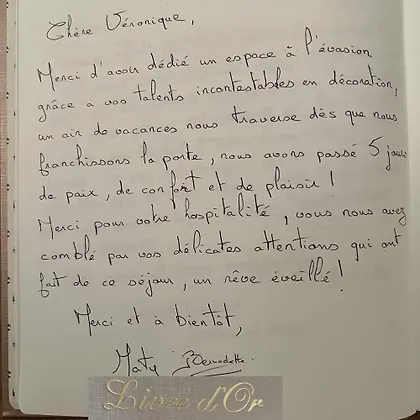 Chère Véronique,
Merci d'avoir dédié un espace à l'évasion
grâce à vos talents incontestables en décoration,
un air de vacances nous traverse dès que nous
franchissons la porte, nous avons passé 5 jours
de paix, de confort et de plaisir !
Merci pour votre hospitalité, vous nous avez
comblé par vos délicates attentions qui ont
fait de ce séjour, un rêve éveillé !
Merci et à bientôt,
Maty Bernadette
Livre d'Or